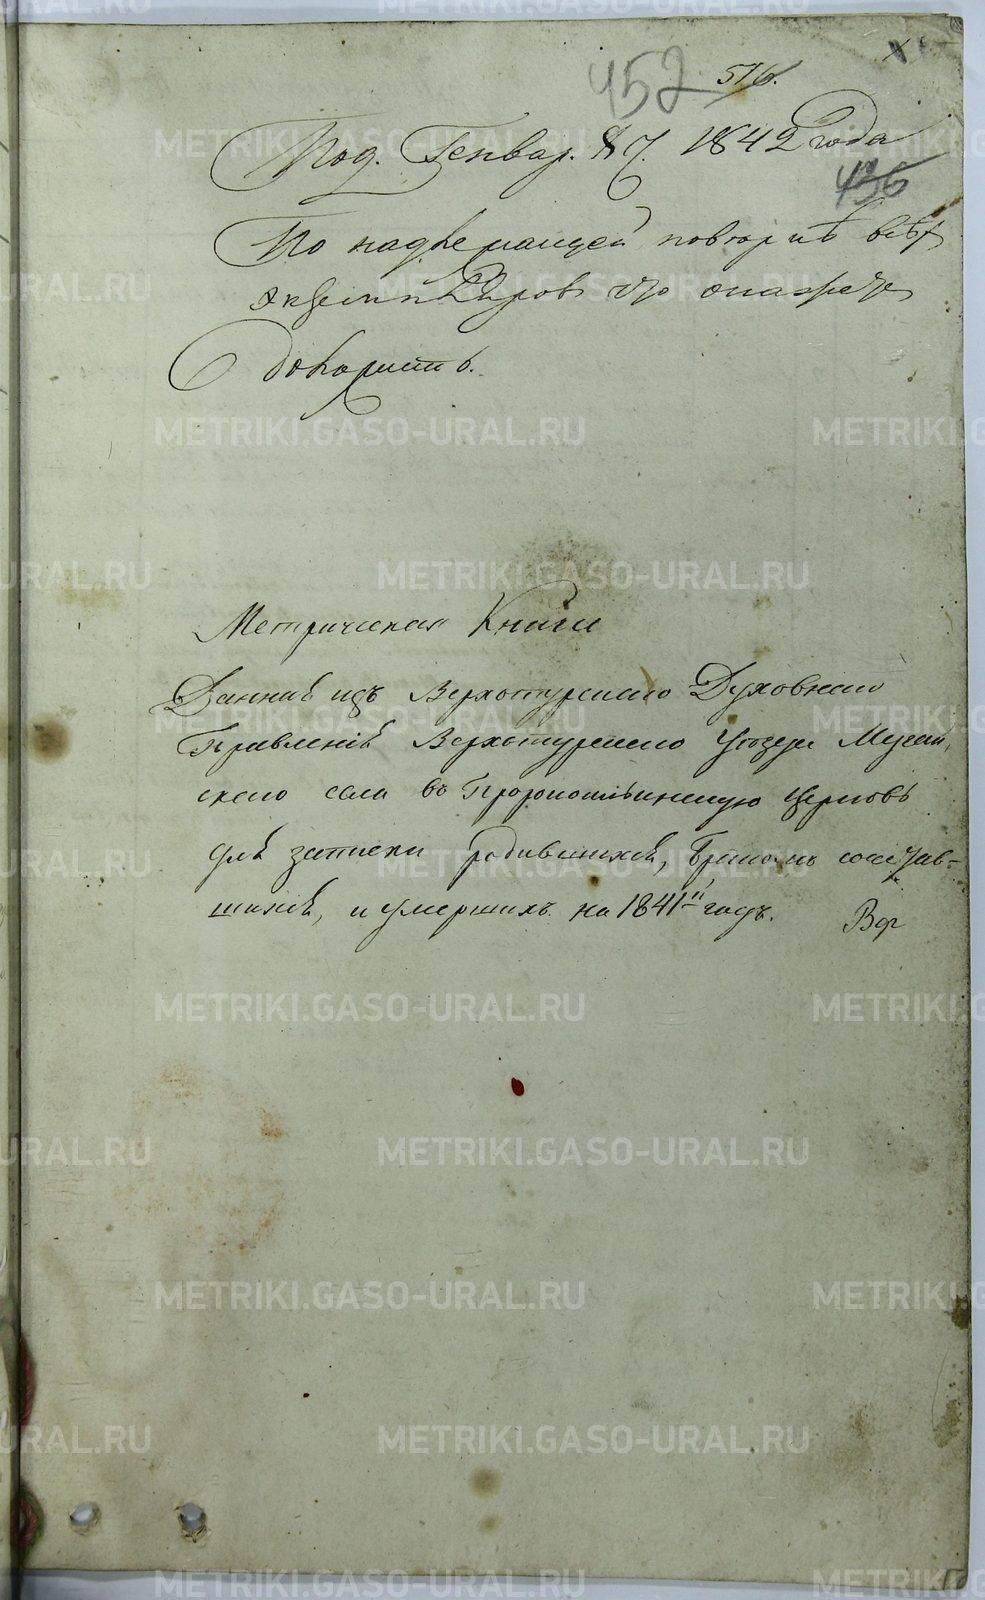 452 516.
Под. Генвар. 7. 1842 года
436
По надлежащей поверкѣ
экземпляров что окажется
доложить.
Метрическая Книга
Данная изъ Верхотурскаго Духовнаго
Правленія Верхотурскаго Уѣзда Мугай,
скаго села въ Пророкоильинскую Церковь
для записки родившихся, бракомъ сочетав-
шихся, и умершихъ на 1841й годъ.
METRIKI.GASO-URAL.RU